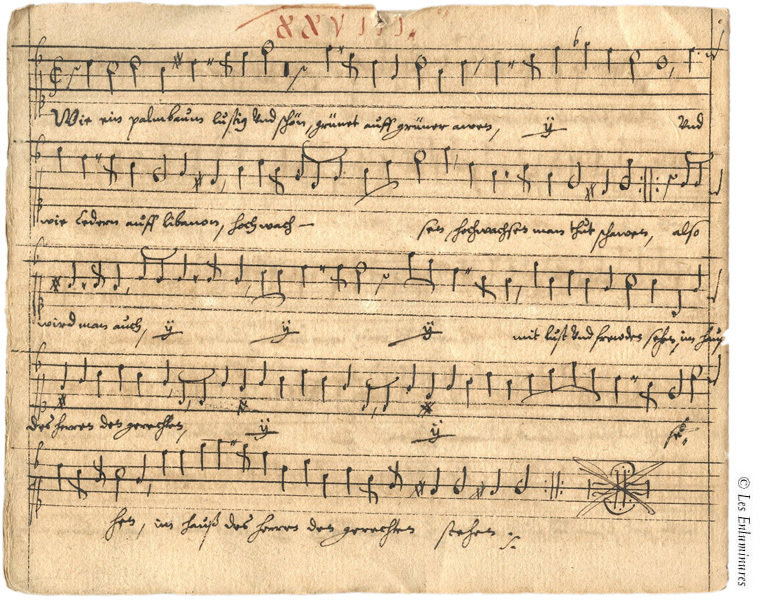 XXVIII.
Wie ein palmbaum lustig Und schön, grünet auff grüner awen, ÿ Und
wie Cedern auff libanon, hoch wach- sen hochwachsen man thut schawen, also
wird man auch, ÿ ÿ ÿ mit lust Und frewden sehen, im hauß
des herren den gerechten, ÿ ÿ ste,
hen, im hauß des herren den gerechten stehen.
© Les Enluminures